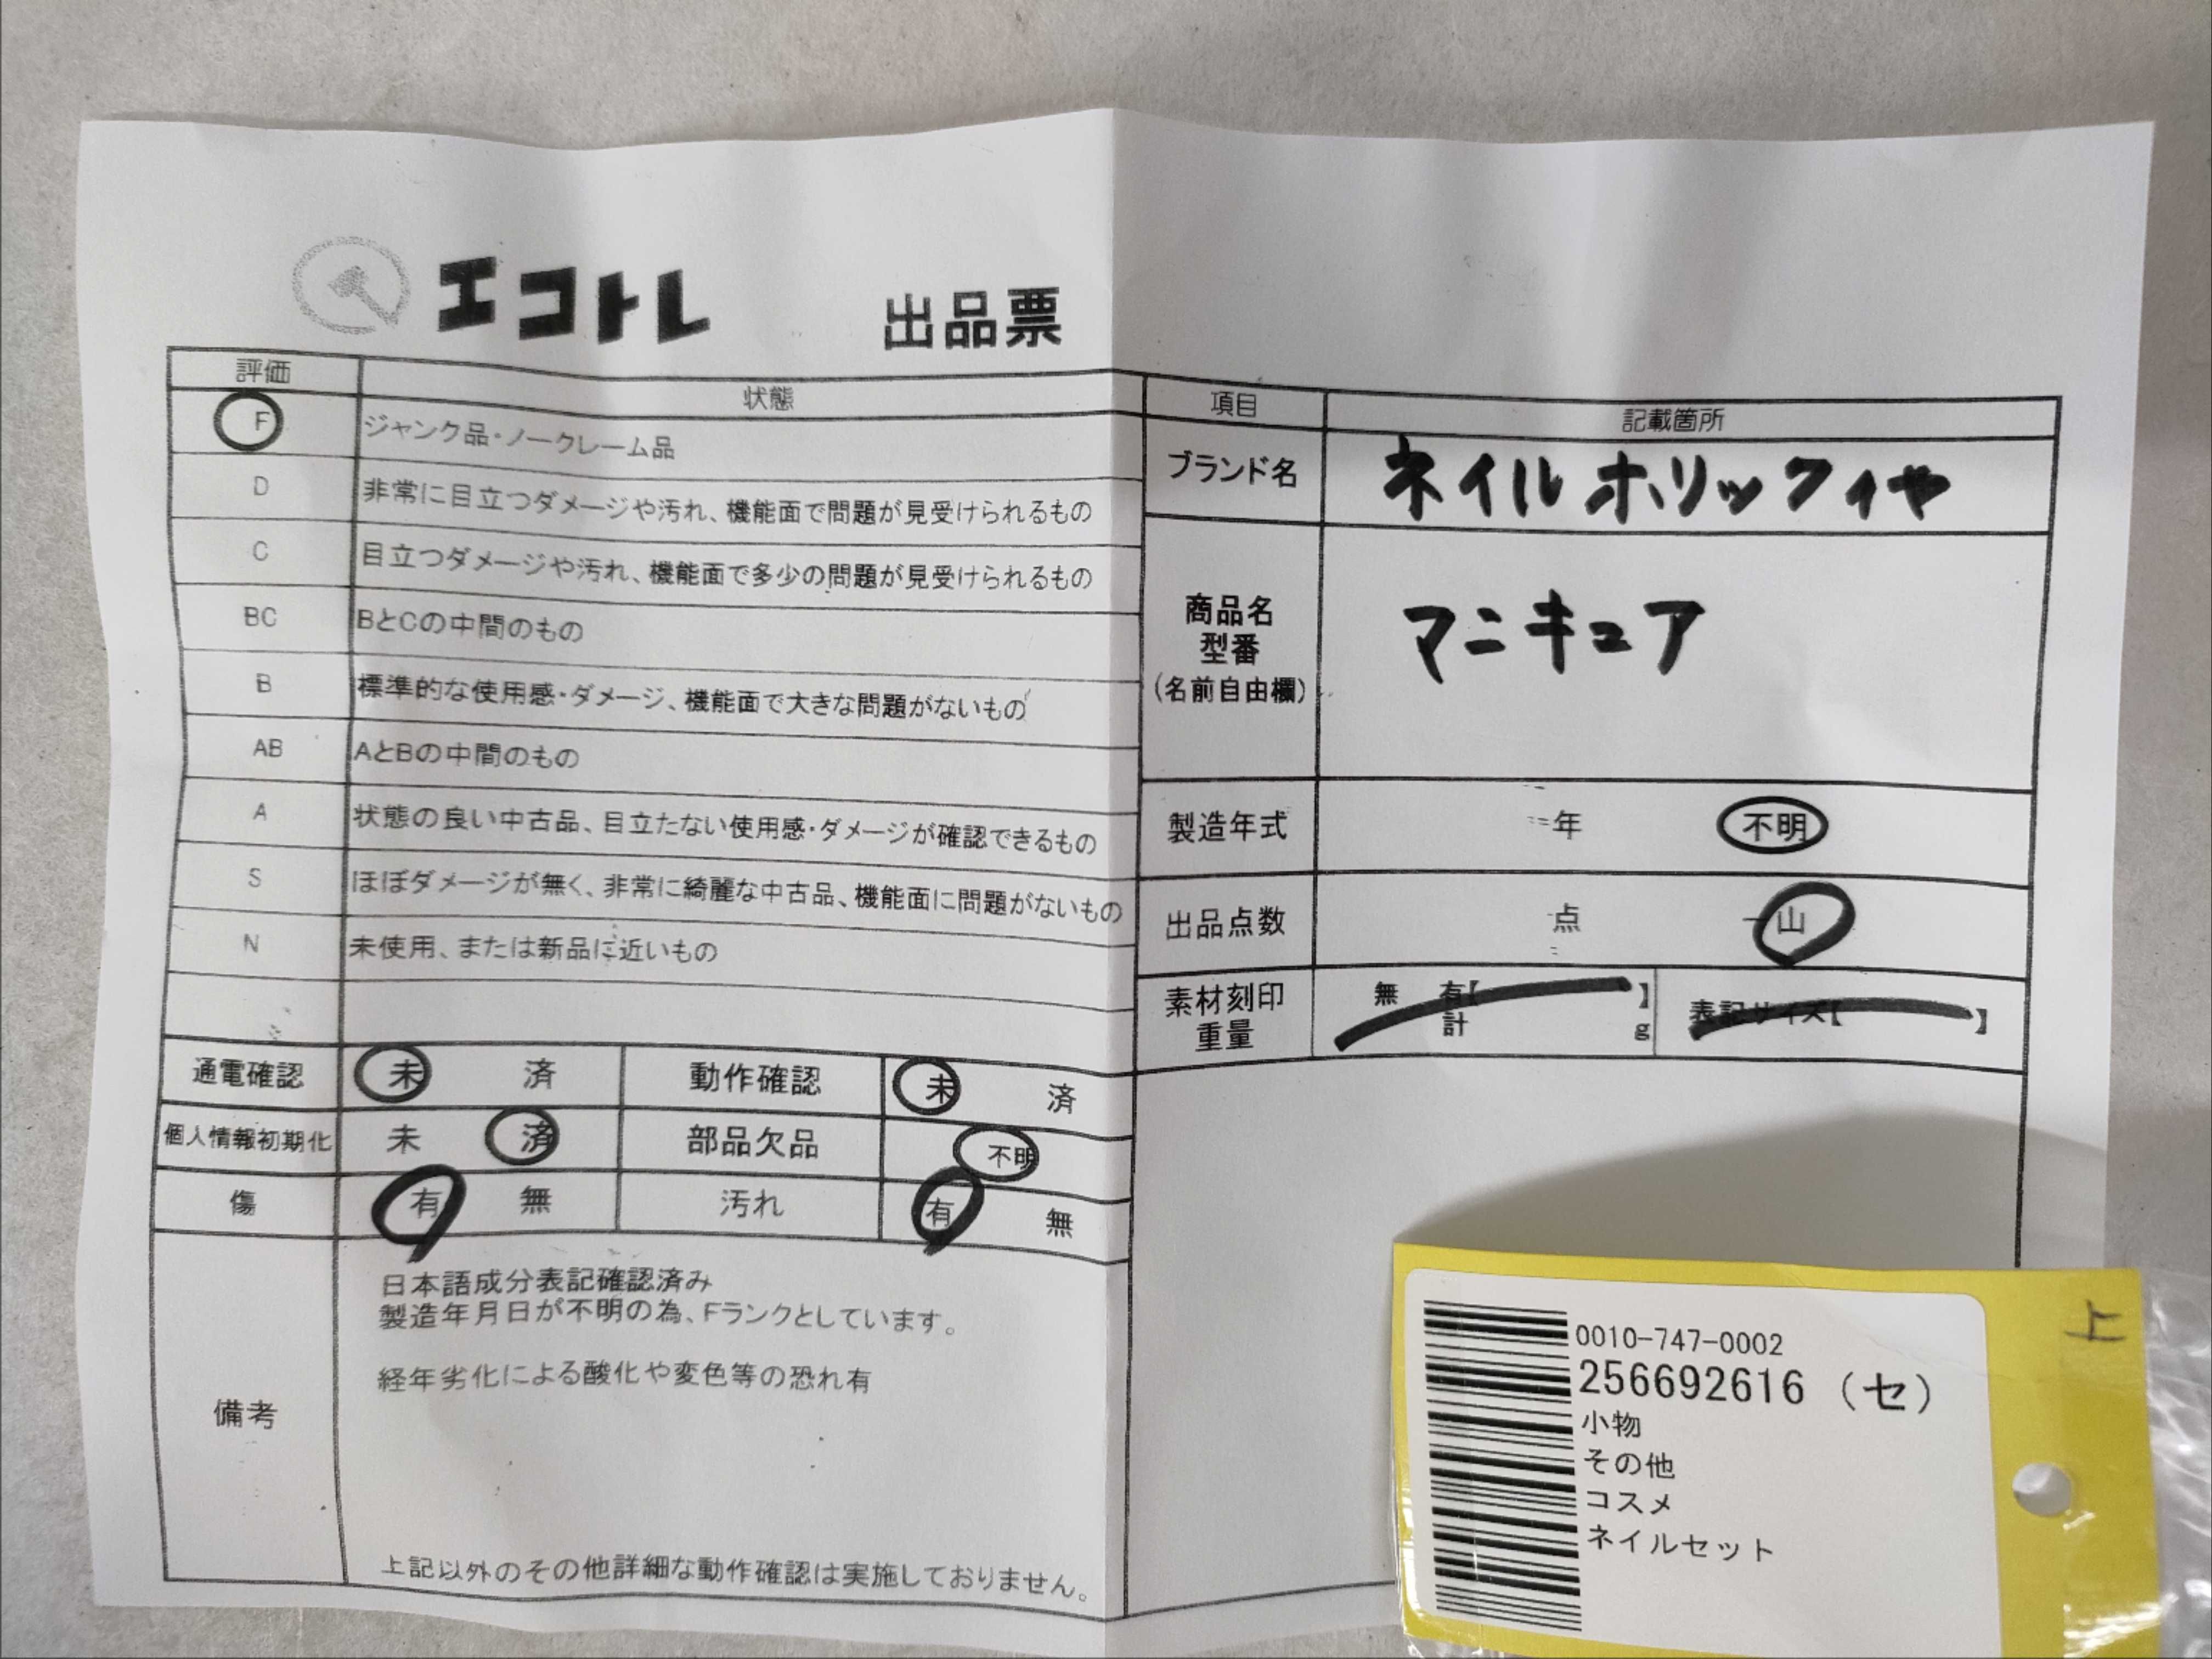 エコトレ 出品票
評価 状態
F ジャンク品・ノークレーム品
D 非常に目立つダメージや汚れ、機能面で問題が見受けられるもの
C 目立つダメージや汚れ、機能面で多少の問題が見受けられるもの
BC BとCの中間のもの
B 標準的な使用感・ダメージ、機能面で大きな問題がないもの
AB AとBの中間のもの
A 状態の良い中古品、目立たない使用感・ダメージが確認できるもの
S ほぼダメージが無く、非常に綺麗な中古品、機能面に問題がないもの
N 未使用、または新品に近いもの
通電確認 未 済 動作確認 未 済
個人情報初期化 未 済 部品欠品 不明
傷 有 無 汚れ 有 無
備考
日本語成分表記確認済み
製造年月日が不明の為、Fランクとしています。
経年劣化による酸化や変色等の恐れ有
上記以外のその他詳細な動作確認は実施しておりません。
項目 記載箇所
ブランド名 ネイルホリック
商品名
型番
(名前自由欄)
マニキュア
製造年式 年 不明
出品点数 点 一山
素材刻印
重量
無 有【 】
計 g
表記サイズ【 】
上
0010-747-0002
256692616 (セ)
小物
その他
コスメ
ネイルセット